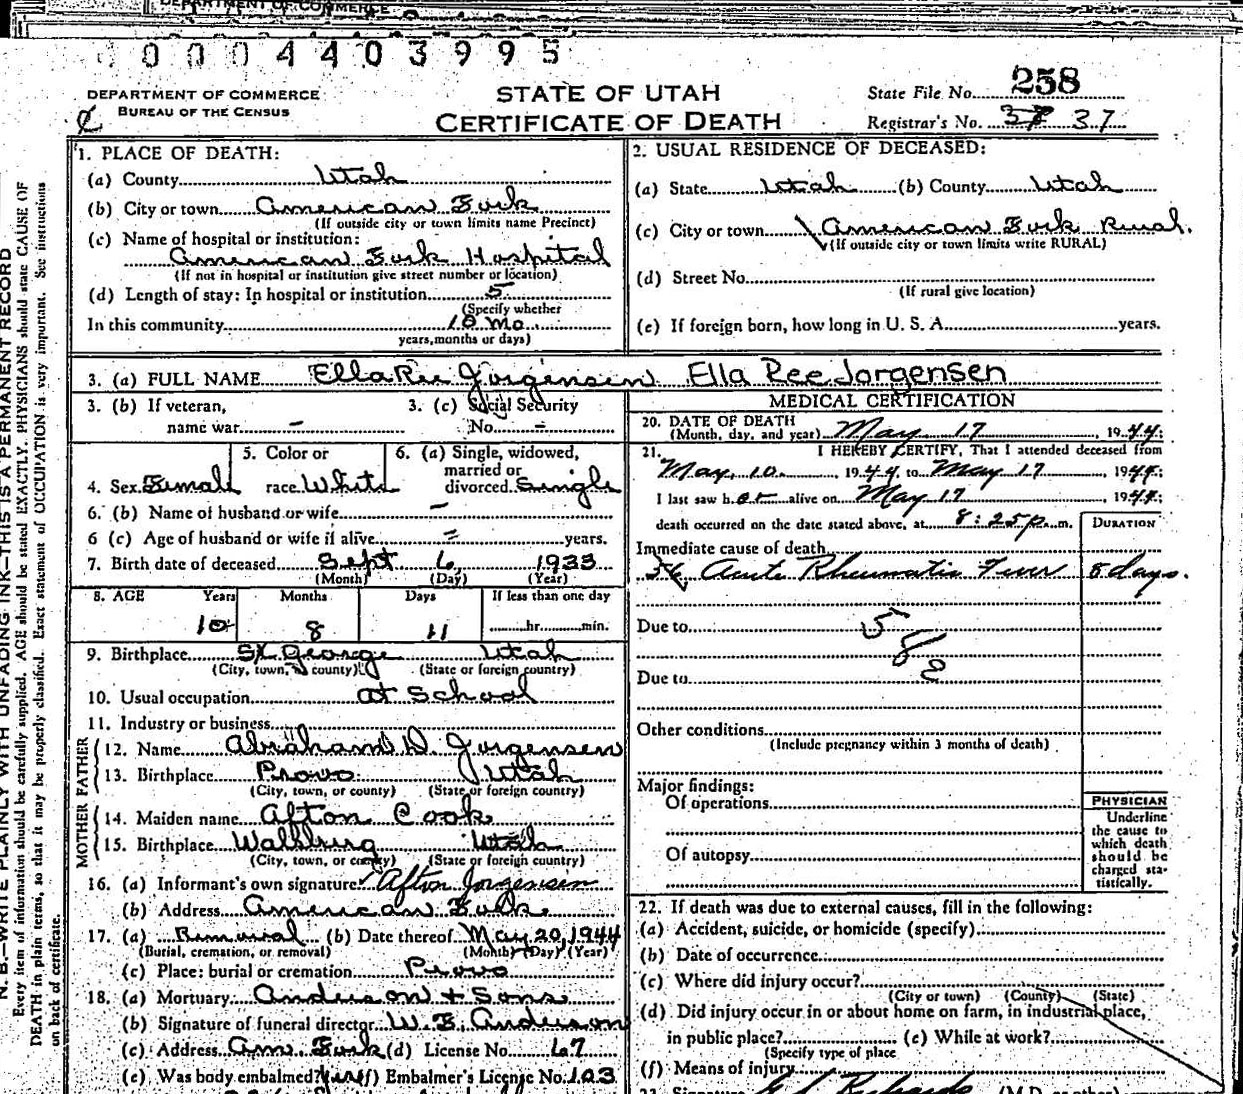 DEPARTMENT OF COMMERCE
0 0 0 4 4 0 3 9 9 5
DEPARTMENT OF COMMERCE
BUREAU OF THE CENSUS
STATE OF UTAH
CERTIFICATE OF DEATH
State File No. 258
Registrar's No. 37 37
N. B.—WRITE PLAINLY WITH UNFADING INK—THIS IS A PERMANENT RECORD
Every item of information should be carefully supplied. AGE should be stated EXACTLY. PHYSICIANS should state CAUSE OF
DEATH in plain terms, so that it may be properly classified. Exact statement of OCCUPATION is very important. See instructions
on back of certificate.
1. PLACE OF DEATH:
(a) County Utah
(b) City or town American Fork
(If outside city or town limits name Precinct)
(c) Name of hospital or institution:
American Fork Hospital
(If not in hospital or institution give street number or location)
(d) Length of stay: In hospital or institution 5
(Specify whether
In this community 10 mo.
years, months or days)
2. USUAL RESIDENCE OF DECEASED:
(a) State Utah (b) County Utah
(c) City or town American Fork Rural.
(If outside city or town limits write RURAL)
(d) Street No.
(If rural give location)
(e) If foreign born, how long in U. S. A. years.
3. (a) FULL NAME EllaRee Jorgensen Ella Ree Jorgensen
3. (b) If veteran,
name war -
3. (c) Social Security
No. -
4. Sex Female
5. Color or
race White
6. (a) Single, widowed,
married or
divorced Single
6. (b) Name of husband or wife -
6 (c) Age of husband or wife if alive - years.
7. Birth date of deceased Sept 6, 1933
(Month) (Day) (Year)
8. AGE Years Months Days If less than one day
10 8 11 hr. min.
9. Birthplace St. George Utah
(City, town, or county) (State or foreign country)
10. Usual occupation at School
11. Industry or business
FATHER
12. Name Abraham D Jorgensen
13. Birthplace Provo Utah
(City, town, or county) (State or foreign country)
MOTHER
14. Maiden name Afton Cook
15. Birthplace Wallsburg Utah
(City, town, or county) (State or foreign country)
16. (a) Informant's own signature Afton Jorgensen
(b) Address American Fork
17. (a) Removal (b) Date thereof May 20, 1944
(Burial, cremation, or removal) (Month) (Day) (Year)
(c) Place: burial or cremation Provo
18. (a) Mortuary: Anderson + Sons
(b) Signature of funeral director W. E. Anderson
(c) Address Am. Fork (d) License No. 67
(e) Was body embalmed? yes (f) Embalmer's License No. 103
MEDICAL CERTIFICATION
20. DATE OF DEATH
(Month, day, and year) May 17, 1944;
21. I HEREBY CERTIFY, That I attended deceased from
May, 10, 1944 to May 17, 1944;
I last saw her alive on May 17, 1944;
death occurred on the date stated above, at 8:25 p. m.
DURATION
Immediate cause of death
Acute Rheumatic Fever 8 days.
Due to 5
8
Due to
Other conditions
(Include pregnancy within 3 months of death)
Major findings:
Of operations
Of autopsy
PHYSICIAN
Underline
the cause to
which death
should be
charged sta-
tistically.
22. If death was due to external causes, fill in the following:
(a) Accident, suicide, or homicide (specify)
(b) Date of occurrence
(c) Where did injury occur?
(City or town) (County) (State)
(d) Did injury occur in or about home on farm, in industrial place,
in public place? (e) While at work?
(Specify type of place
(f) Means of injury
23. Signature Richards (M.D. or other)